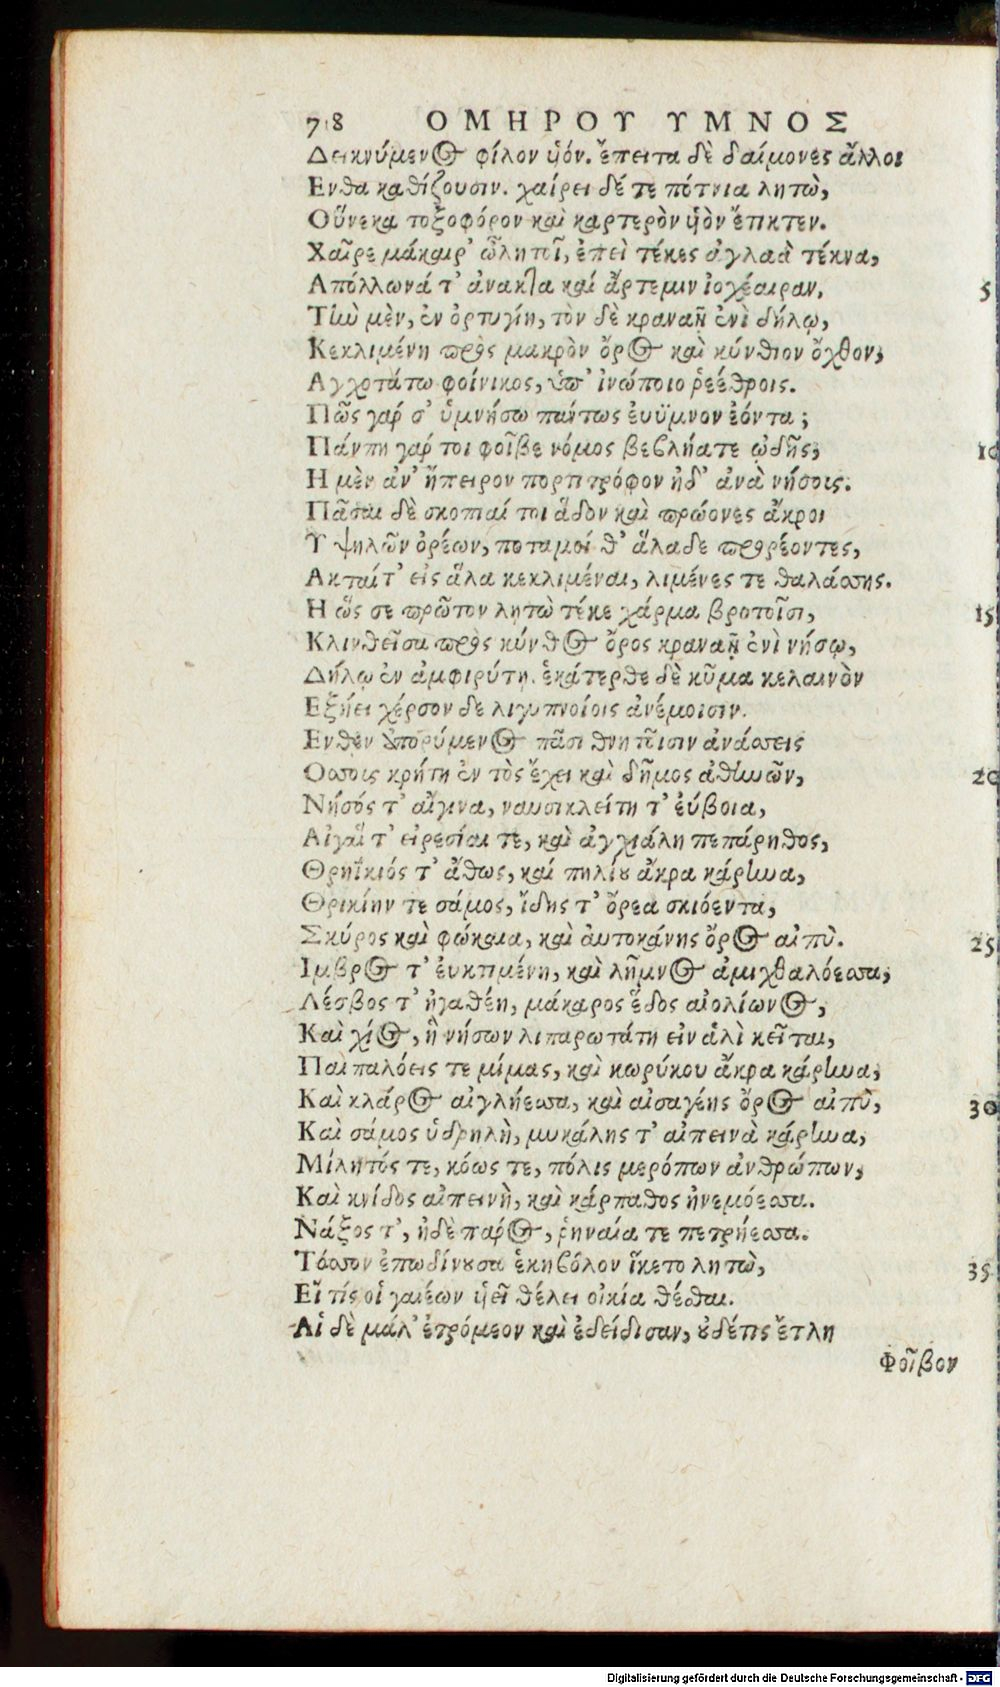 718 ΟΜΗΡΟΥ ΥΜΝΟΣ
Δεικνύμενος φίλον υἱόν. ἔπειτα δὲ δαίμονες ἄλλοι
Ενθα καθίζουσιν. χαίρει δέ τε πότνια λητὼ,
Οὕνεκα τοξοφόρον καὶ καρτερὸν υἱὸν ἔτικτεν.
Χαῖρε μάκαιρ' ὦ λητοῖ, ἐπεὶ τέκες ἀγλαὰ τέκνα,
Απόλλωνά τ' ἀνακτα καί ἄρτεμιν ἰοχέαιραν, 5
Τὴν μὲν, ἐν ὀρτυγίη, τὸν δὲ κραναῇ ἐνὶ δήλῳ,
Κεκλιμένη πρὸς μακρὸν ὄρος καὶ κύνθιον ὄχθον,
Αγχοτάτω φοίνικος, ὑπ' ἰνώποιο ῥεέθροις.
Πῶς γαρ σ' ὑμνήσω πάντως ἐυϋμνον ἐόντα;
Πάντη γαρ τοι φοῖβε νόμος βεβλήατε ῳδῆς, 10
Η μὲν ἀν' ἤπειρον πορτιτρόφον ἠδ' ἀνὰ νήσοις.
Πᾶσαι δὲ σκοπιαί τοι ἅδον καὶ πρώονες ἄκροι
Υψηλῶν ὀρέων, ποταμοί θ' ἅλαδε προρέοντες,
Ακταί τ' εἰς ἅλα κεκλιμέναι, λιμένες τε θαλάσσης.
Η ὥς σε πρῶτον λητὼ τέκε χάρμα βροτοῖσι, 15
Κλινθεῖσα πρὸς κύνθος ὄρος κραναῇ ἐνὶ νήσῳ,
Δήλῳ ἐν ἀμφιρύτῃ. ἑκάτερθε δὲ κῦμα κελαινὸν
Εξήει χέρσον δε λιγυπνοίοις ἀνέμοισιν.
Ενθεν ἀπορύμενος πᾶσι θνητοῖσιν ἀνάσσεις
Οσσοις κρήτη ἐν τὸς ἔχει καὶ δῆμος ἀθηνῶν, 20
Νήσός τ' αἴγινα, ναυσικλείτη τ' ἐύβοια,
Αἰγαί τ' εἰρεσίαι τε, καὶ ἀγχιάλη πεπάρηθος,
Θρηΐκιός τ' ἄθως, καί πηλίου ἄκρα κάρηνα,
Θρικίην τε σάμος, ἴδης τ' ὄρεα σκιόεντα,
Σκύρος καὶ φώκαια, καὶ ἀυτοκάνης ὄρος αἰπὺ. 25
Ιμβρος τ' ἐυκτιμένη, καὶ λῆμνος ἀμιχθαλόεσσα,
Λέσβος τ' ἠγαθέη, μάκαρος ἕδος αἰολίωνος,
Καὶ χίος, ἣ νήσων λιπαρωτάτη ειν ἁλὶ κεῖται,
Παιπαλόεις τε μίμας, καὶ κωρύκου ἄκρα κάρηνα,
Καὶ κλάρος αἰγλήεσσα, καὶ αἰσαγέης ὄρος αἰπὺ, 30
Καὶ σάμος ὑδρηλὴ, μυκάλης τ' αἰπεινὰ κάρηνα,
Μίλητός τε, κόως τε, πόλις μερόπων ἀνθρώπων,
Καὶ κνίδος αἰπεινὴ, καὶ κάρπαθος ἠνεμόεσσα.
Νάξος τ', ἠδὲ παρος, ῥηναία τε πετρήεσσα.
Τόσσον ἐπωδίνουσα ἑκηβόλον ἵκετο λητὼ, 35
Εἴ τίς οἱ γαιέων υἱεῖ θέλει οἰκία θέσθαι.
Αἱ δὲ μάλ' ἐτρόμεον καὶ ἐδείδισαν, οὐδέτις ἔτλη
Φοῖβον
Digitalisierung gefördert durch die Deutsche Forschungsgemeinschaft - DFG